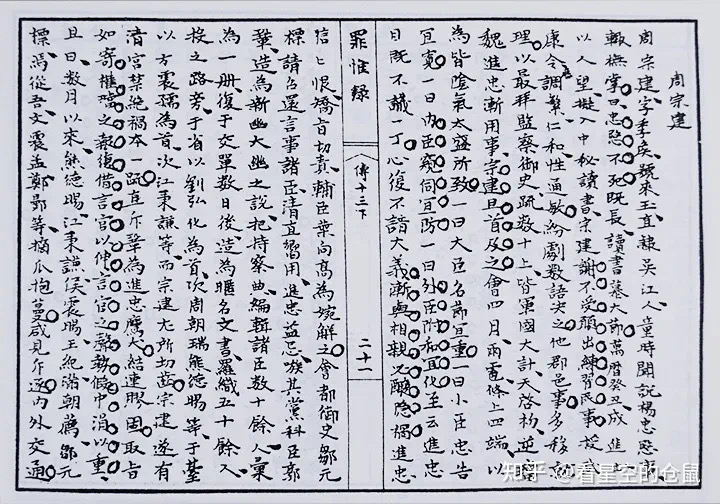 周宗建
周宗建字季侯號來玉直隸吳江人童時聞説楊忠愍事
輙撫掌曰忠愍不死既長讀書慕大節萬曆癸丑成進士
以人望擬入中秘讀書宗建謝不受願出練習民事授武
康令調繁仁和性通敏紛劇數語决之他郡邑事多移就
理以最拜監察御史疏數十上皆軍國大計天啓初逆璫
魏進忠漸用事宗建旦首及之會四月雨雹條上四端以
為皆陰氣太盛所致一曰大臣名節宜重一曰小臣忠告
宜寬一曰內臣窺伺宜防一曰外臣附和宜化至云進忠
目既不識一丁心復不諳大義漸與相親必釀隱禍進忠
罪惟錄
傳十三下
二十一
信之恨矯旨切責輔臣葉向高為婉解之會都御史鄒元
標請召還言事諸臣清直習用進忠益忌嗾其黨科臣郭
鞏造為新幽大幽之説把持察典編輯諸臣數十餘人彙
為一册復于交單數日後造為匿名文書羅織五十餘人
投之路旁于省以劉弘化為首次周朝瑞熊德陽等于臺
以方震孺為首次江秉謙等而宗建尤所切齒宗建遂有
清宮禁絕禍本一疏直斥鞏為進忠鷹犬結連膠固取旨
如寄摧璫之報復借言官以伸言官之聲勢假中涓以重
且曰數月以來熊德陽江秉謙侯震暘王紀滿朝薦鄒元
標馮從吾文震孟鄭鄤等摘瓜抱蔓咸見斥逐內外交通
知乎 @看星空的仓鼠